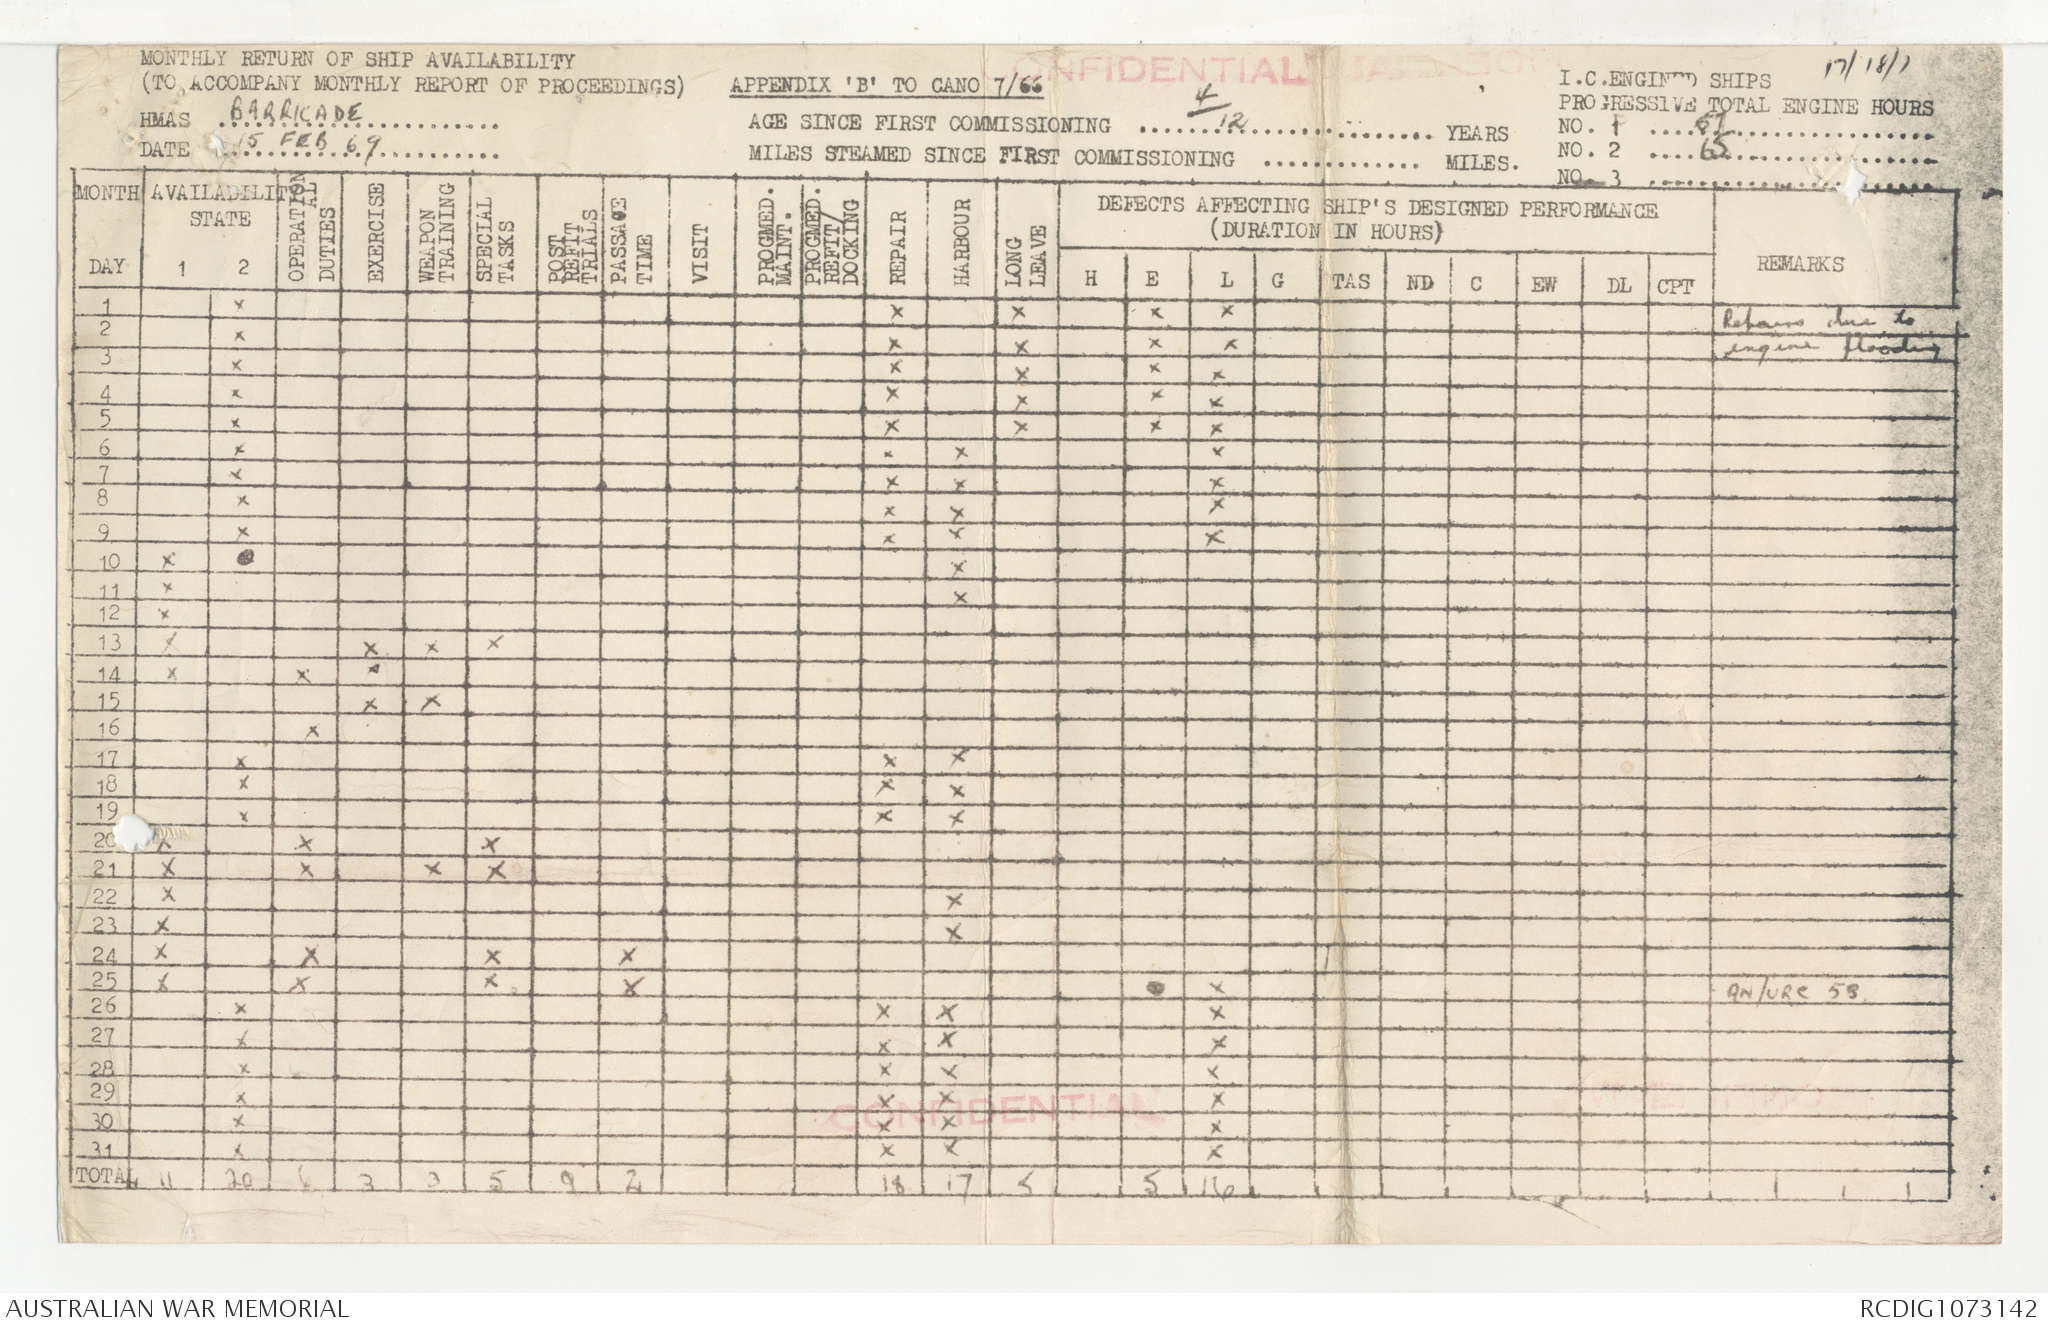 MONTHLY RETURN OF SHIP AVAILABILITY
(TO ACCOMPANY MONTHLY REPORT OF PROCEEDINGS)
APPENDIX 'B' TO CANO 7/66
CONFIDENTIAL
17/18/1
HMAS BARRICADE
DATE 15 FEB 69
AGE SINCE FIRST COMMISSIONING 4/12 YEARS
MILES STEAMED SINCE FIRST COMMISSIONING MILES.
I.C. ENGINED SHIPS
PROGRESSIVE TOTAL ENGINE HOURS
NO. 1
NO. 2 65
NO. 3
MONTH AVAILABILITY STATE OPERATIONAL DUTIES EXERCISE WEAPON TRAINING SPECIAL TASKS POST REFIT TRIALS PASSAGE TIME VISIT PROGMED. MAINT. PROGMED. REFIT/ DOCKING REPAIR HARBOUR LONG LEAVE DEFECTS AFFECTING SHIP'S DESIGNED PERFORMANCE (DURATION IN HOURS) REMARKS
DAY 1 2 H E L G TAS ND C EW DL CPT
1 x x x x x Repairs due to
2 x x x x x engine flooding
3 x x x x x
4 x x x x x
5 x x x x x
6 x x x x
7 x x x x
8 x x x x
9 x x x x
10 x x
11 x x
12 x
13 x x x x
14 x x x
15 x x
16 x
17 x x x
18 x x x
19 x x x
20 x x x
21 x x x x
22 x x
23 x x
24 x x x x
25 x x x x x AN/URC 58
26 x x x x
27 x x x x
28 x x x x
29 x x x x
30 x x x x
31 x x x x
TOTAL 11 20 6 3 3 5 9 2 18 17 5 5 16
CONFIDENTIAL
AUSTRALIAN WAR MEMORIAL
RCDIG1073142